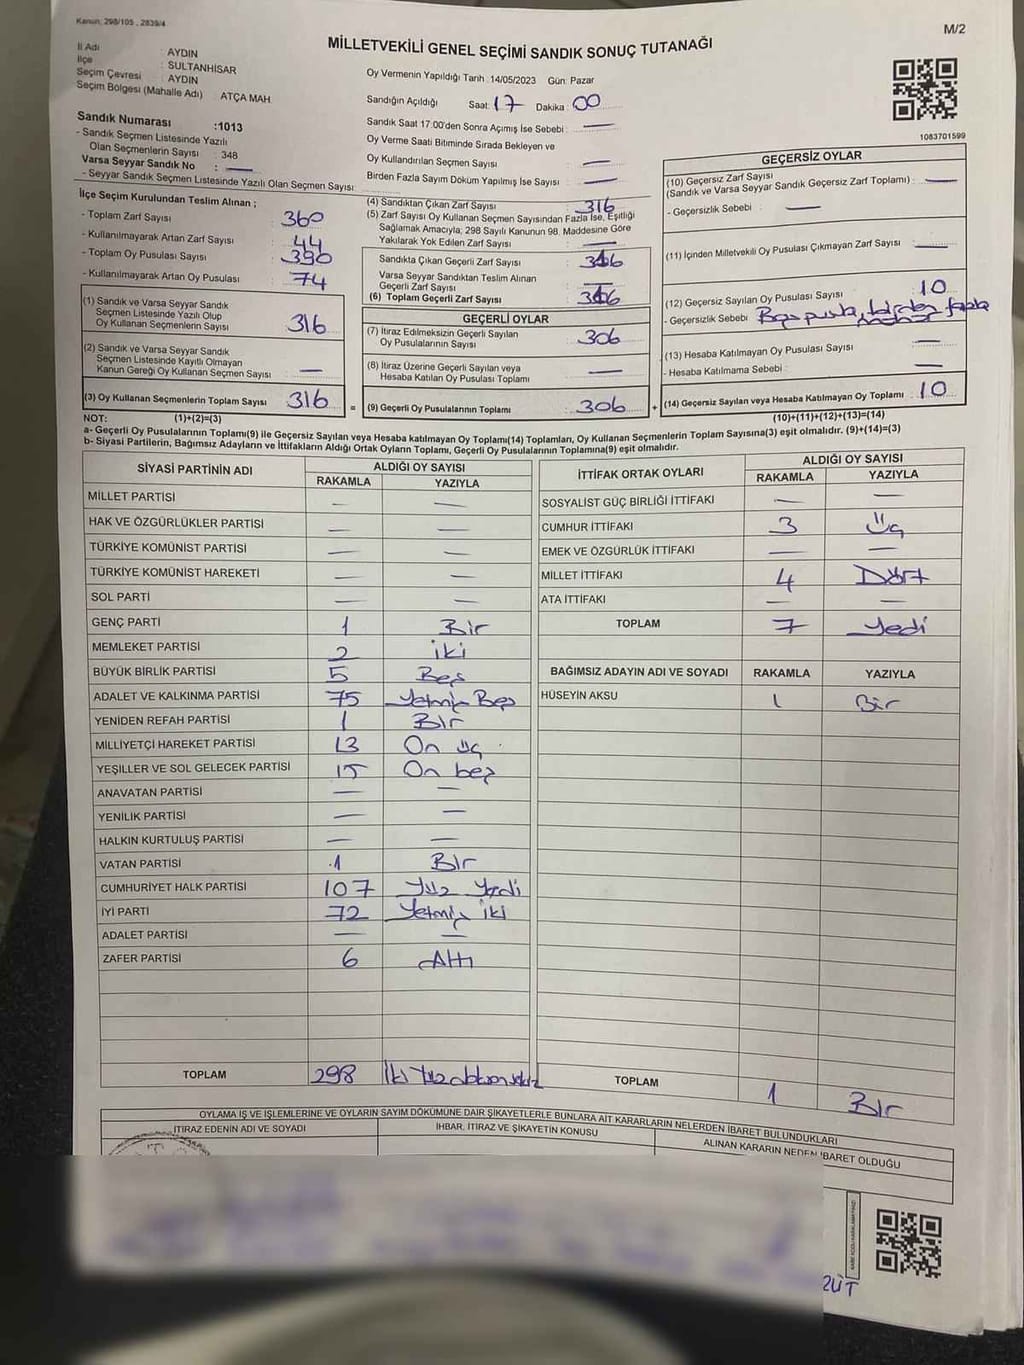 Kanun: 298/105 , 2839/4
M/2
MİLLETVEKİLİ GENEL SEÇİMİ SANDIK SONUÇ TUTANAĞI
İl Adı : AYDIN
İlçe : SULTANHİSAR
Seçim Çevresi : AYDIN
Seçim Bölgesi (Mahalle Adı) : ATÇA MAH
Oy Vermenin Yapıldığı Tarih :14/05/2023 Gün: Pazar
Sandığın Açıldığı Saat: 17 Dakika : 00
Sandık Saat 17:00'den Sonra Açımış İse Sebebi : —
Oy Verme Saati Bitiminde Sırada Bekleyen ve
Oy Kullandırılan Seçmen Sayısı : —
Birden Fazla Sayım Döküm Yapılmış İse Sayısı : —
1083701599
Sandık Numarası :1013
- Sandık Seçmen Listesinde Yazılı
Olan Seçmenlerin Sayısı : 348
Varsa Seyyar Sandık No : —
- Seyyar Sandık Seçmen Listesinde Yazılı Olan Seçmen Sayısı:
İlçe Seçim Kurulundan Teslim Alınan ;
- Toplam Zarf Sayısı : 360
- Kullanılmayarak Artan Zarf Sayısı : 44
- Toplam Oy Pusulası Sayısı : 390
- Kullanılmayarak Artan Oy Pusulası : 74
(1) Sandık ve Varsa Seyyar Sandık
Seçmen Listesinde Yazılı Olup
Oy Kullanan Seçmenlerin Sayısı : 316
(2) Sandık ve Varsa Seyyar Sandık
Seçmen Listesinde Kayıtlı Olmayan
Kanun Gereği Oy Kullanan Seçmen Sayısı : —
(3) Oy Kullanan Seçmenlerin Toplam Sayısı : 316
(4) Sandıktan Çıkan Zarf Sayısı : 316
(5) Zarf Sayısı Oy Kullanan Seçmen Sayısından Fazla İse, Eşitliği
Sağlamak Amacıyla; 298 Sayılı Kanunun 98. Maddesine Göre
Yakılarak Yok Edilen Zarf Sayısı : —
Sandıkta Çıkan Geçerli Zarf Sayısı :
Varsa Seyyar Sandıktan Teslim Alınan
Geçerli Zarf Sayısı : —
(6) Toplam Geçerli Zarf Sayısı :
GEÇERLİ OYLAR
(7) İtiraz Edilmeksizin Geçerli Sayılan
Oy Pusulalarının Sayısı : 306
(8) İtiraz Üzerine Geçerli Sayılan veya
Hesaba Katılan Oy Pusulası Toplamı : —
= (9) Geçerli Oy Pusulalarının Toplamı : 306 +
GEÇERSİZ OYLAR
(10) Geçersiz Zarf Sayısı
(Sandık ve Varsa Seyyar Sandık Geçersiz Zarf Toplamı) : —
- Geçersizlik Sebebi : —
(11) İçinden Milletvekili Oy Pusulası Çıkmayan Zarf Sayısı : —
(12) Geçersiz Sayılan Oy Pusulası Sayısı : 10
- Geçersizlik Sebebi : birden fazla
(13) Hesaba Katılmayan Oy Pusulası Sayısı : —
- Hesaba Katılmama Sebebi : —
(14) Geçersiz Sayılan veya Hesaba Katılmayan Oy Toplamı : 10
NOT: (1)+(2)=(3)
(10)+(11)+(12)+(13)=(14)
a- Geçerli Oy Pusulalarının Toplamı(9) ile Geçersiz Sayılan veya Hesaba katılmayan Oy Toplamı(14) Toplamları, Oy Kullanan Seçmenlerin Toplam Sayısına(3) eşit olmalıdır. (9)+(14)=(3)
b- Siyasi Partilerin, Bağımsız Adayların ve İttifakların Aldığı Ortak Oyların Toplamı, Geçerli Oy Pusulalarının Toplamına(9) eşit olmalıdır.
SİYASİ PARTİNİN ADI ALDIĞI OY SAYISI
RAKAMLA YAZIYLA
MİLLET PARTİSİ — —
HAK VE ÖZGÜRLÜKLER PARTİSİ — —
TÜRKİYE KOMÜNİST PARTİSİ — —
TÜRKİYE KOMÜNİST HAREKETİ — —
SOL PARTİ — —
GENÇ PARTİ 1 Bir
MEMLEKET PARTİSİ 2 iki
BÜYÜK BİRLİK PARTİSİ 5 Beş
ADALET VE KALKINMA PARTİSİ 75 Yetmiş Beş
YENİDEN REFAH PARTİSİ 1 Bir
MİLLİYETÇİ HAREKET PARTİSİ 13 On üç
YEŞİLLER VE SOL GELECEK PARTİSİ 15 On beş
ANAVATAN PARTİSİ — —
YENİLİK PARTİSİ — —
HALKIN KURTULUŞ PARTİSİ — —
VATAN PARTİSİ 1 Bir
CUMHURİYET HALK PARTİSİ 107 Yüz Yedi
İYİ PARTİ 72 Yetmiş iki
ADALET PARTİSİ — —
ZAFER PARTİSİ 6 Altı
TOPLAM 298 İki Yüz doksan sekiz
İTTİFAK ORTAK OYLARI ALDIĞI OY SAYISI
RAKAMLA YAZIYLA
SOSYALİST GÜÇ BİRLİĞİ İTTİFAKI — —
CUMHUR İTTİFAKI 3 Üç
EMEK VE ÖZGÜRLÜK İTTİFAKI — —
MİLLET İTTİFAKI 4 Dört
ATA İTTİFAKI — —
TOPLAM 7 Yedi
BAĞIMSIZ ADAYIN ADI VE SOYADI RAKAMLA YAZIYLA
HÜSEYİN AKSU 1 Bir
TOPLAM 1 Bir
OYLAMA İŞ VE İŞLEMLERİNE VE OYLARIN SAYIM DÖKÜMÜNE DAİR ŞİKAYETLERLE BUNLARA AİT KARARLARIN NELERDEN İBARET BULUNDUKLARI
İTİRAZ EDENİN ADI VE SOYADI İHBAR, İTİRAZ VE ŞİKAYETİN KONUSU ALINAN KARARIN NEDEN İBARET OLDUĞU